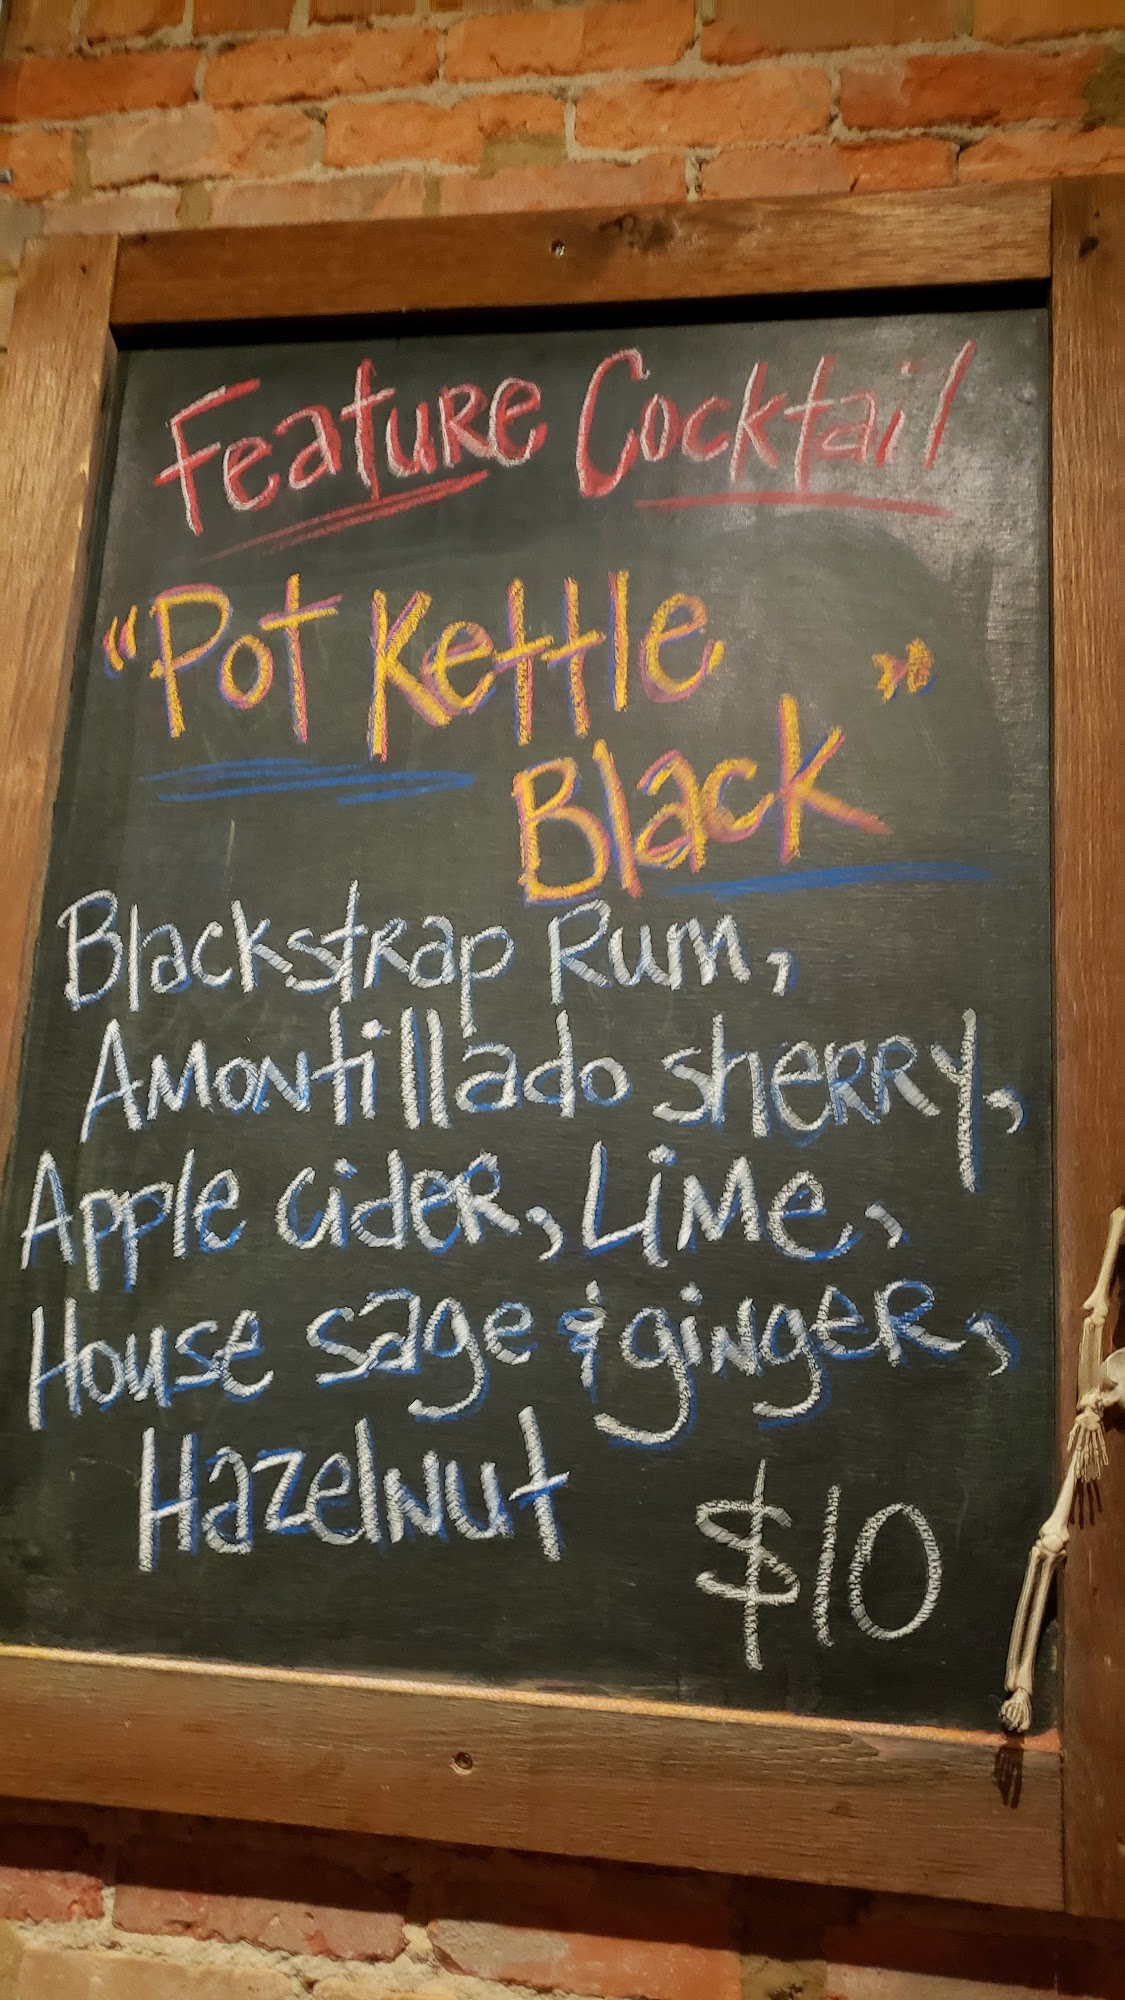 Feature Cocktail
"Pot Kettle
Black"
Blackstrap Rum,
Amontillado sherry,
Apple cider, Lime,
House sage & ginger,
Hazelnut
$10